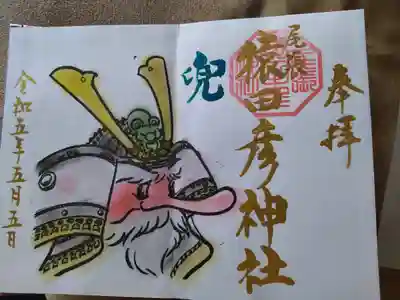 奉拝
尾張
猿田彦神社
兜
令和五年五月五日